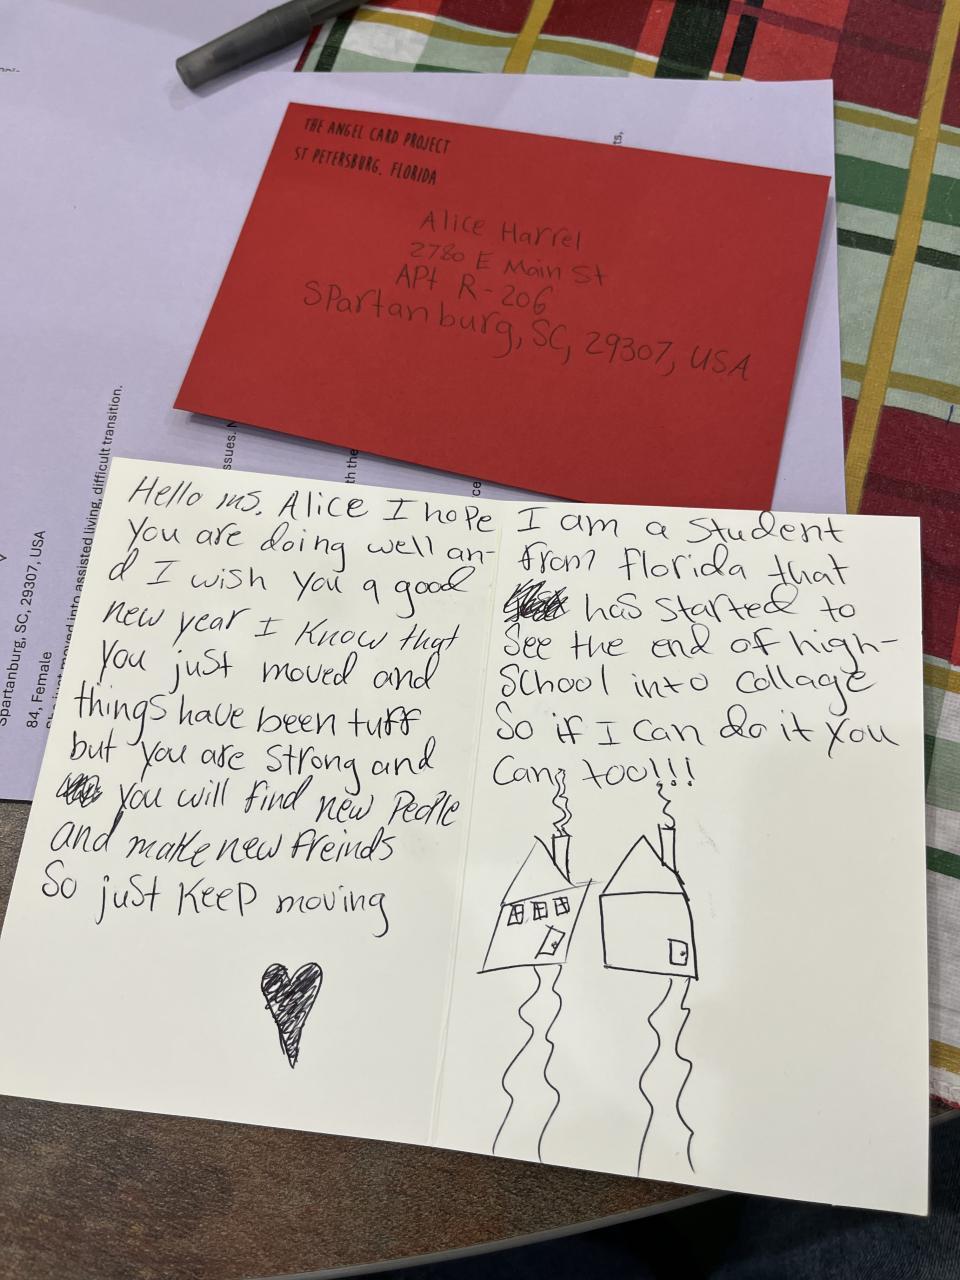 THE ANGEL CARD PROJECT
ST PETERSBURG, FLORIDA
Alice Harrel
2780 E Main St
APt R-206
Spartanburg, SC, 29307, USA
ts,
ssues.
th the
ce
Spartanburg, SC, 29307, USA
84, Female
moved into assisted living, difficult transition.
Hello ms. Alice I hope
you are doing well an-
d I wish you a good
new year I know that
you just moved and
things have been tuff
but you are strong and
you will find new People
and make new freinds
So just keep moving
I am a student
from florida that
has started to
see the end of high-
school into collage
So if I can do it you
can too!!!